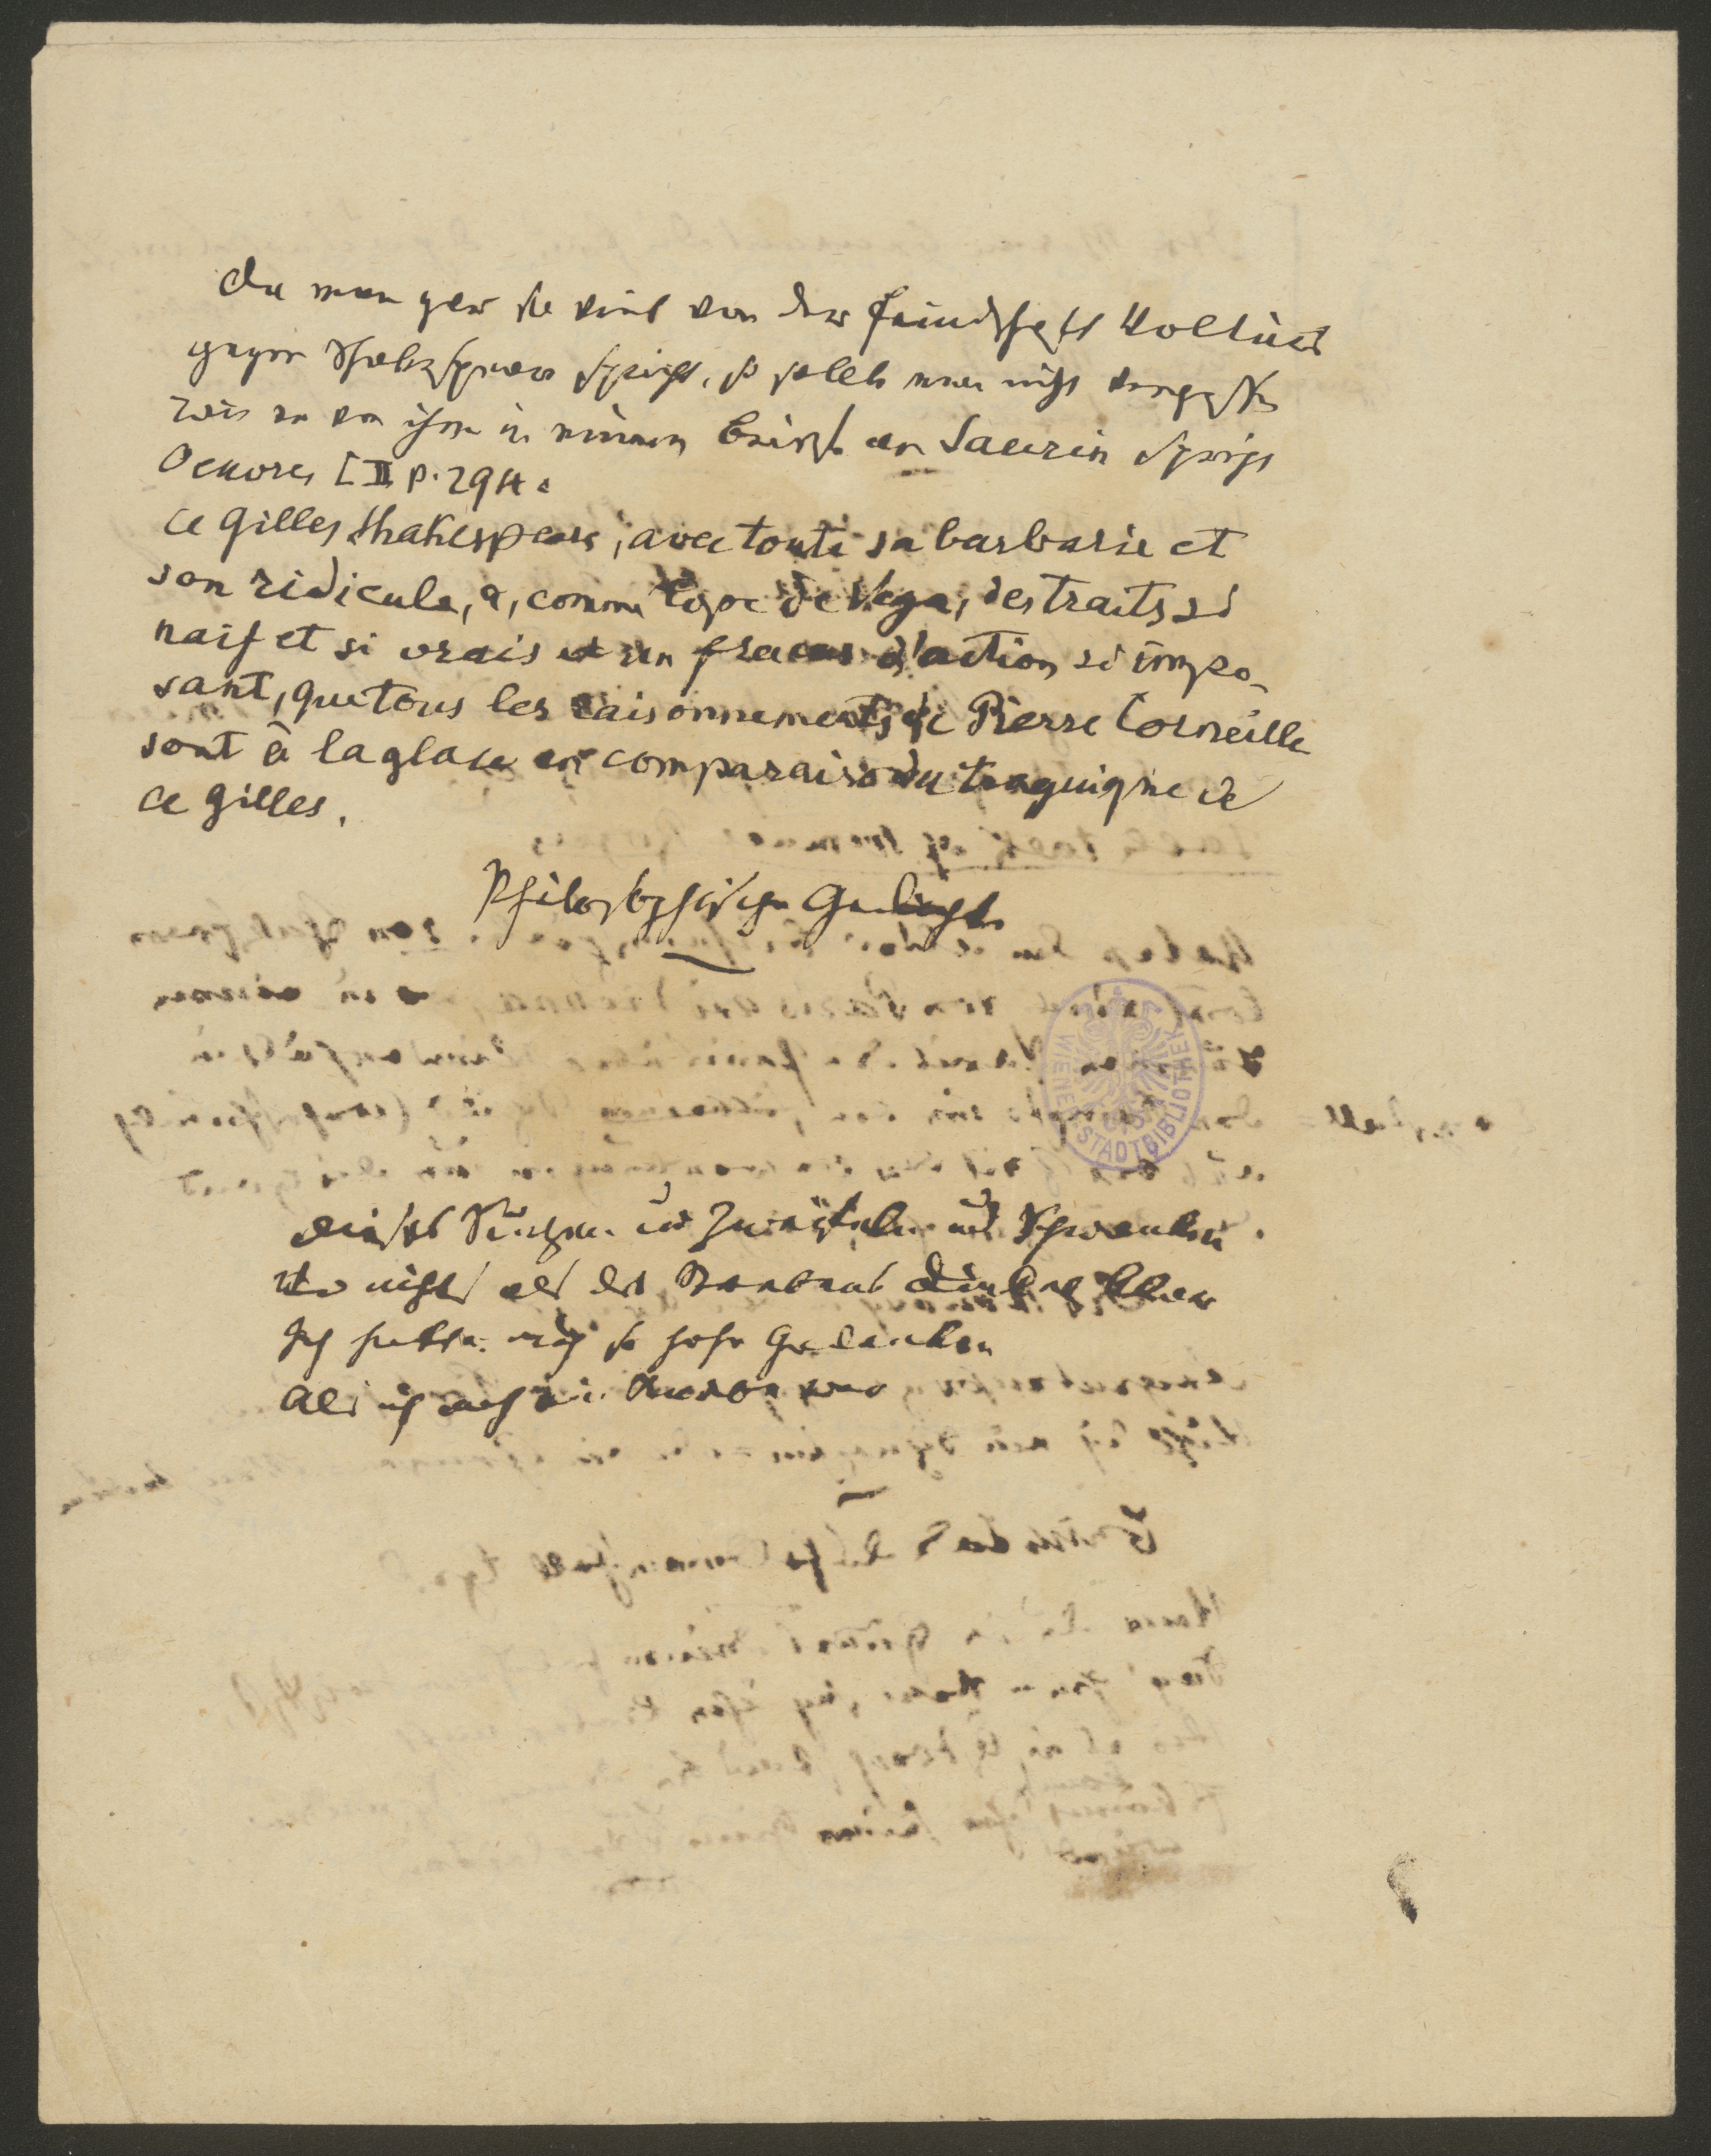 Da man gar so viel von der Feindschaft Voltairs
gegen Shakespeare spricht, so sollte man nicht vergessen
wie er von ihm in einem Briefe an Saurin spricht
Oeuvres LII p. 294.
Ce Gilles Shakespeare, avec toute sa barbarie et
son ridicule, a, comme Lope de Vega, des traits si
naifs et si vrais et un fracas d'action si impo-
sant, que tous les raisonnements de Pierre Corneille
sont à la glace en comparaison du tragique de
ce Gilles.
Philosophische Gedichte
Dieses Suchen und Zweifeln und Schwanken
als das Denken
Ich hatte noch so hohe Gedanken
Als ich noch ein war
WIENER STADTBIBLIOTHEK